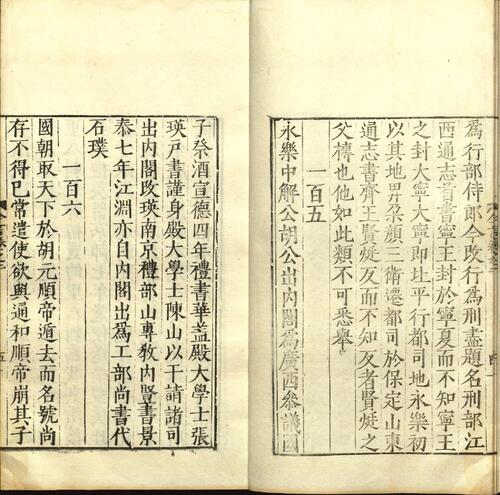 爲行部侍郎今改行爲刑盡題名刑部江
西通志首書寧王封於寧夏而不知寧王
之封大寧大寧即北平行都司地永樂初
以其地畀朶顔三衛遷都司於保定山東
通志書齊王賢㷼反而不知反者賢㷼之
父榑也他如此類不可悉舉
一百五
永樂中解公胡公出內閣爲廣西叅議國
子祭酒宣德四年禮書華盖殿大學士張
瑛戸書謹身殿大學士陳山以干請諸司
出內閣改瑛南京禮部山專敎內豎書景
泰七年江淵亦自內閣出爲工部尚書代
石璞
一百六
國朝取天下於胡元順帝遁去而名號尚
存不得已常遣使欲與通和順帝崩其子